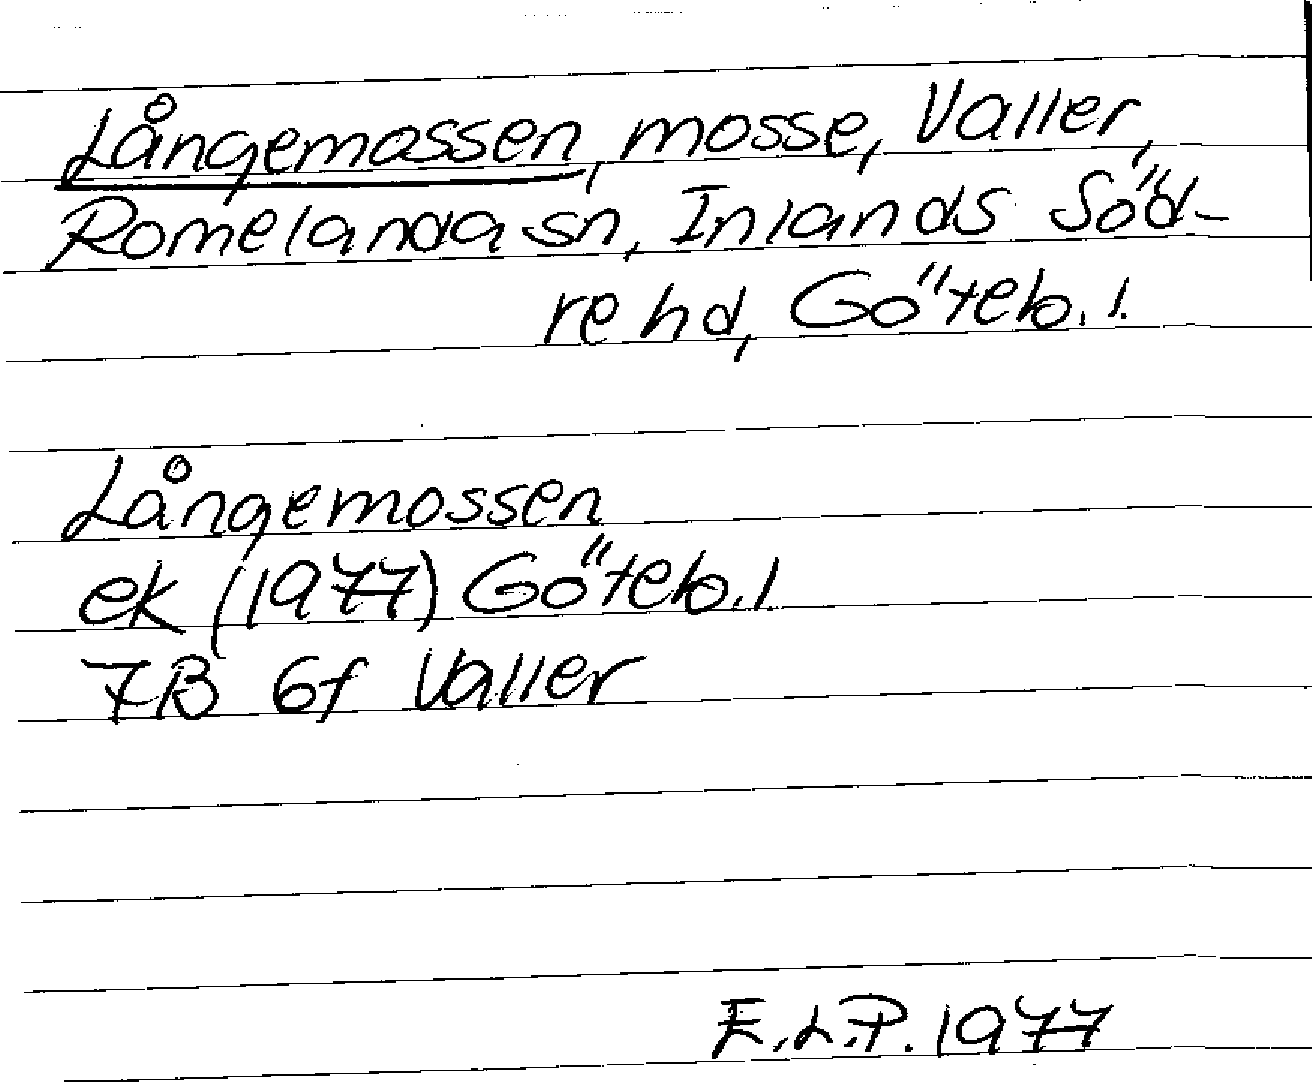 Långemossen, mosse, Valler,
Romelanda sn, Inlands Söd-
re hd, Göteb. l.
Långemossen
ek (1977) Göteb. l.
7B 6f Valler
E.L.P. 1977